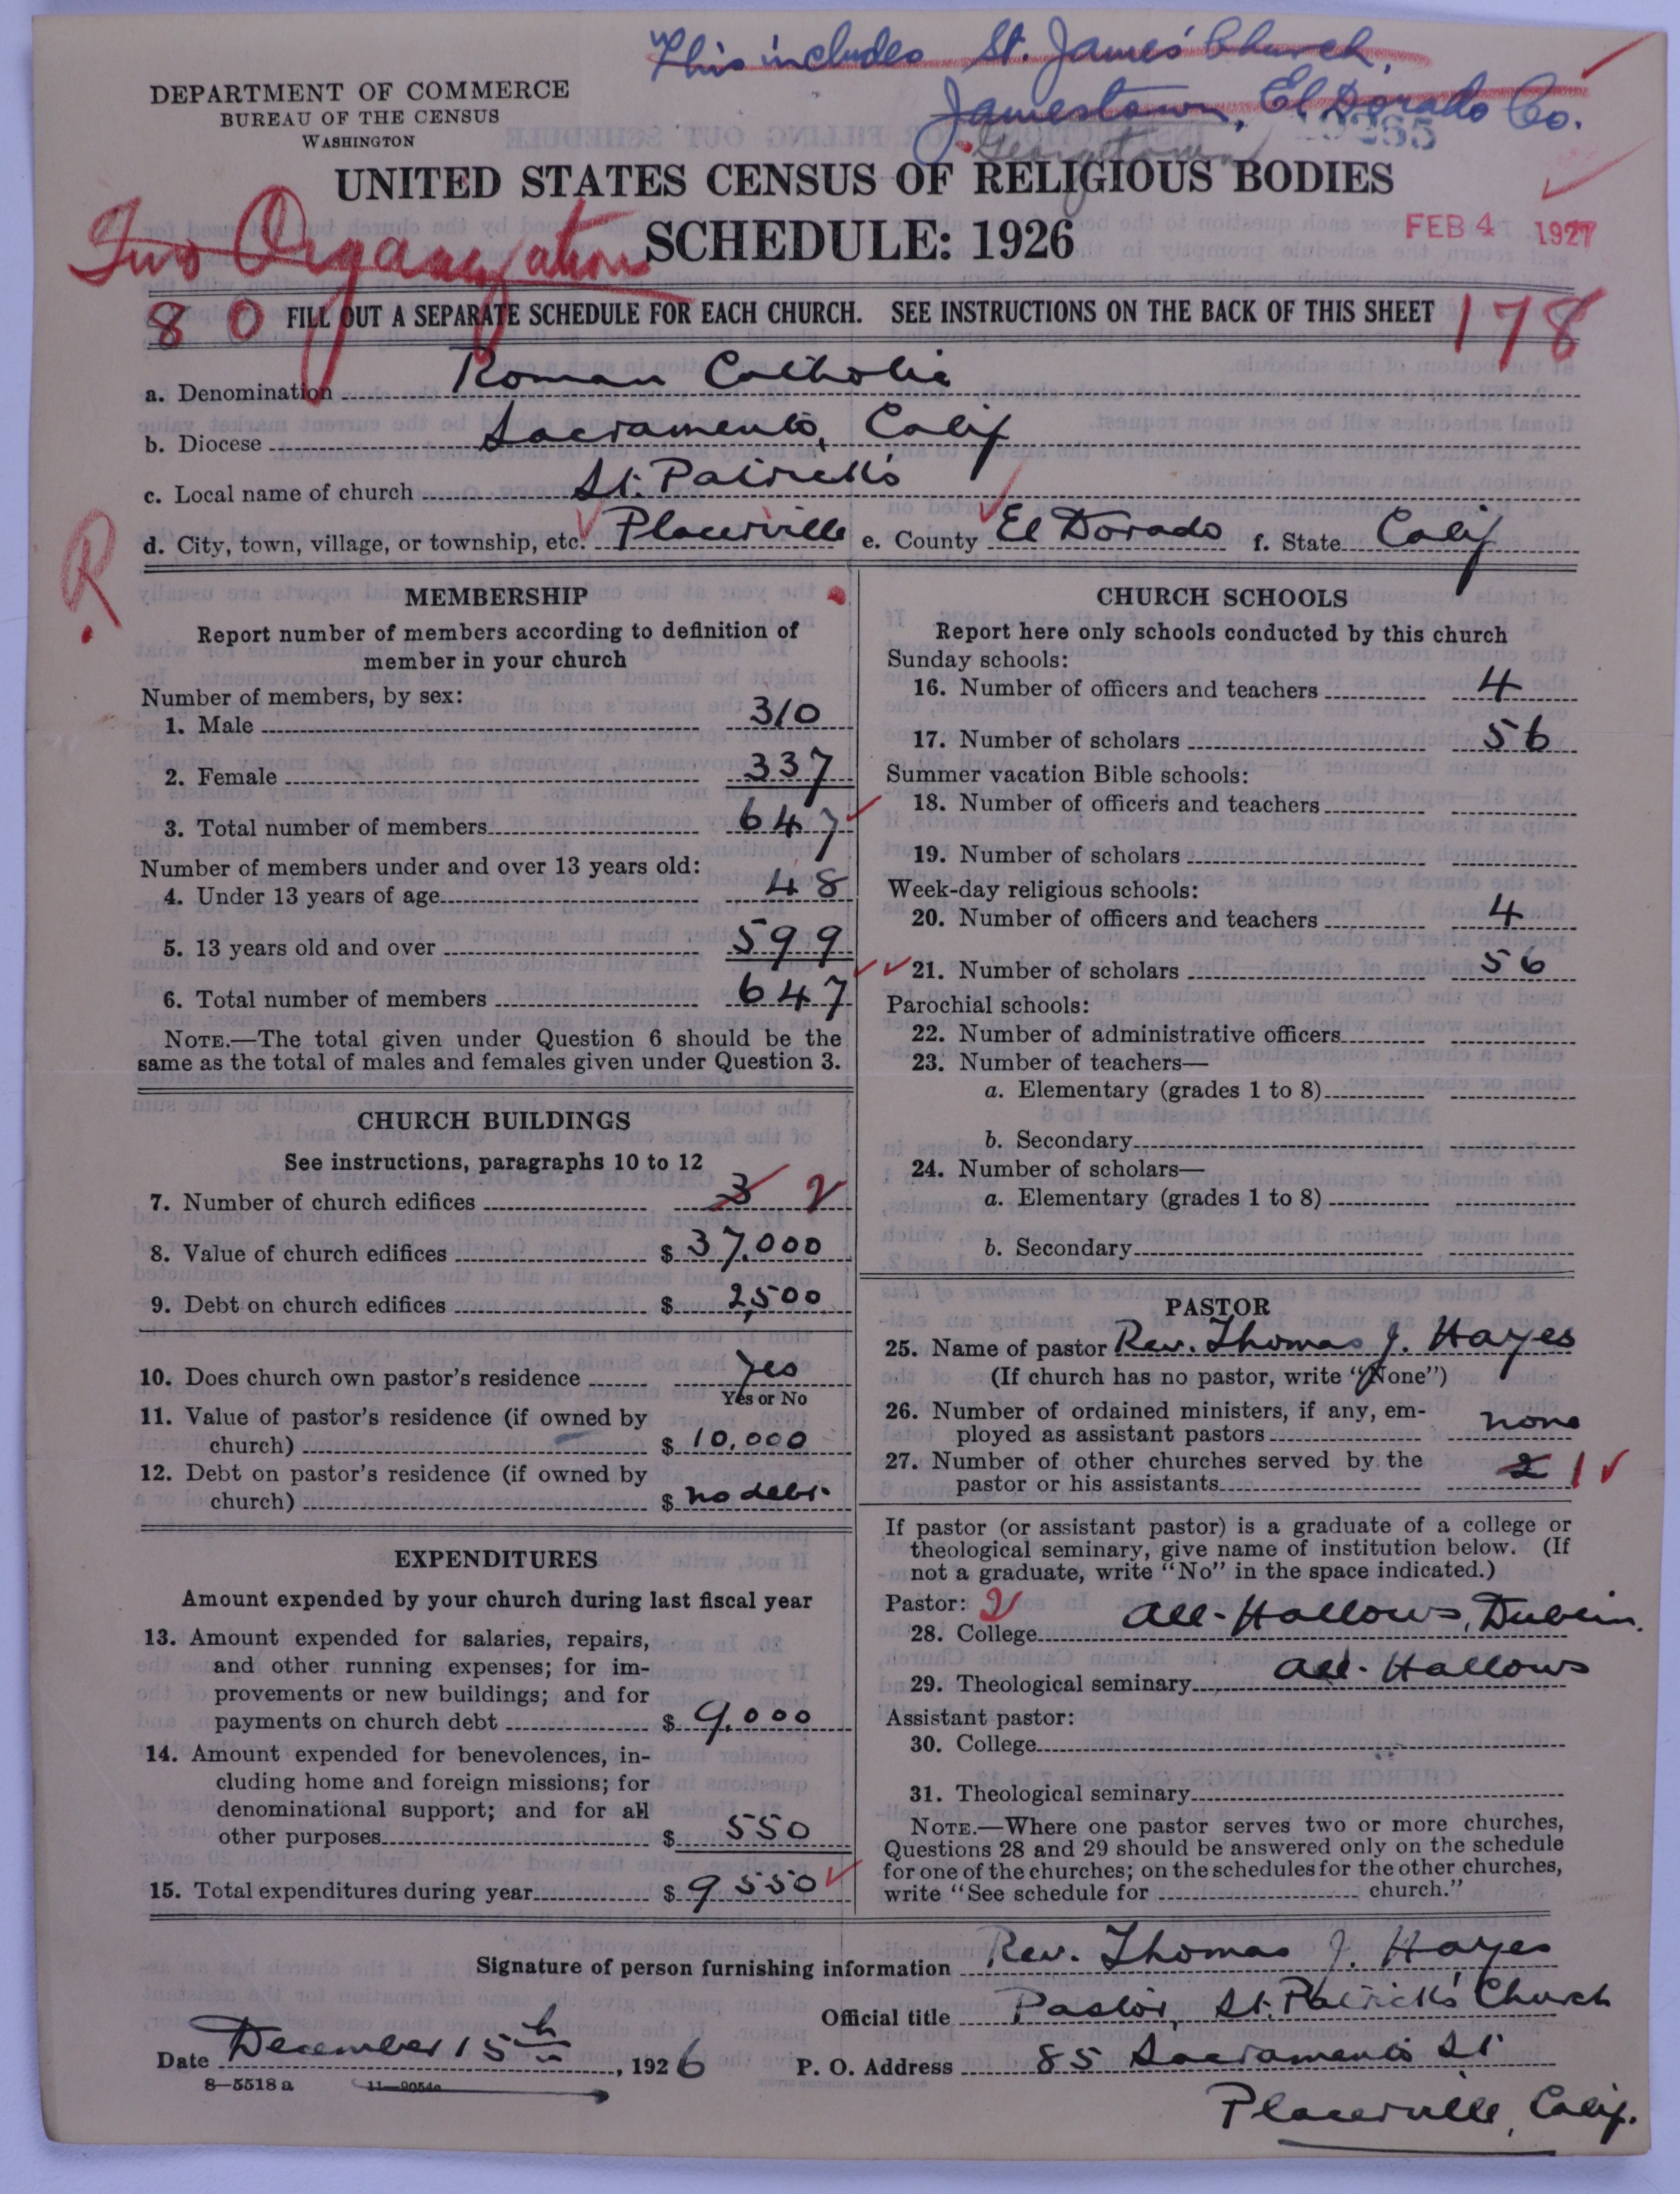 This includes St. James' Church,
Jamestown, El Dorado Co.
Georgetown
DEPARTMENT OF COMMERCE
BUREAU OF THE CENSUS
WASHINGTON
UNITED STATES CENSUS OF RELIGIOUS BODIES
SCHEDULE: 1926
FEB 4 1927
Two Organizations
80 FILL OUT A SEPARATE SCHEDULE FOR EACH CHURCH. SEE INSTRUCTIONS ON THE BACK OF THIS SHEET 178
a. Denomination Roman Catholic
b. Diocese Sacramento, Calif
c. Local name of church St. Patrick's
d. City, town, village, or township, etc. Placerville e. County El Dorado f. State Calif
R
MEMBERSHIP
Report number of members according to definition of
member in your church
Number of members, by sex:
1. Male 310
2. Female 337
3. Total number of members 647
Number of members under and over 13 years old:
4. Under 13 years of age 48
5. 13 years old and over 599
6. Total number of members 647
NOTE.—The total given under Question 6 should be the
same as the total of males and females given under Question 3.
CHURCH BUILDINGS
See instructions, paragraphs 10 to 12
7. Number of church edifices 3 2
8. Value of church edifices $ 37,000
9. Debt on church edifices $ 2,500
10. Does church own pastor's residence Yes
Yes or No
11. Value of pastor's residence (if owned by
church) $ 10,000
12. Debt on pastor's residence (if owned by
church) $ no debt.
EXPENDITURES
Amount expended by your church during last fiscal year
13. Amount expended for salaries, repairs,
and other running expenses; for im-
provements or new buildings; and for
payments on church debt $ 9,000
14. Amount expended for benevolences, in-
cluding home and foreign missions; for
denominational support; and for all
other purposes $ 550
15. Total expenditures during year $ 9550
CHURCH SCHOOLS
Report here only schools conducted by this church
Sunday schools:
16. Number of officers and teachers 4
17. Number of scholars 56
Summer vacation Bible schools:
18. Number of officers and teachers
19. Number of scholars
Week-day religious schools:
20. Number of officers and teachers 4
21. Number of scholars 56
Parochial schools:
22. Number of administrative officers
23. Number of teachers—
a. Elementary (grades 1 to 8)
b. Secondary
24. Number of scholars—
a. Elementary (grades 1 to 8)
b. Secondary
PASTOR
25. Name of pastor Rev. Thomas J. Hayes
(If church has no pastor, write "None")
26. Number of ordained ministers, if any, em-
ployed as assistant pastors none
27. Number of other churches served by the
pastor or his assistants 2 1
If pastor (or assistant pastor) is a graduate of a college or
theological seminary, give name of institution below. (If
not a graduate, write "No" in the space indicated.)
Pastor: 2
28. College All-Hallows, Dublin.
29. Theological seminary All-Hallows
Assistant pastor:
30. College
31. Theological seminary
NOTE.—Where one pastor serves two or more churches,
Questions 28 and 29 should be answered only on the schedule
for one of the churches; on the schedules for the other churches,
write "See schedule for church."
Signature of person furnishing information Rev. Thomas J. Hayes
Official title Pastor, St. Patrick's Church
Date December 15th, 1926 P. O. Address 85 Sacramento St
8—5518 a 11—9054a
Placerville, Calif.